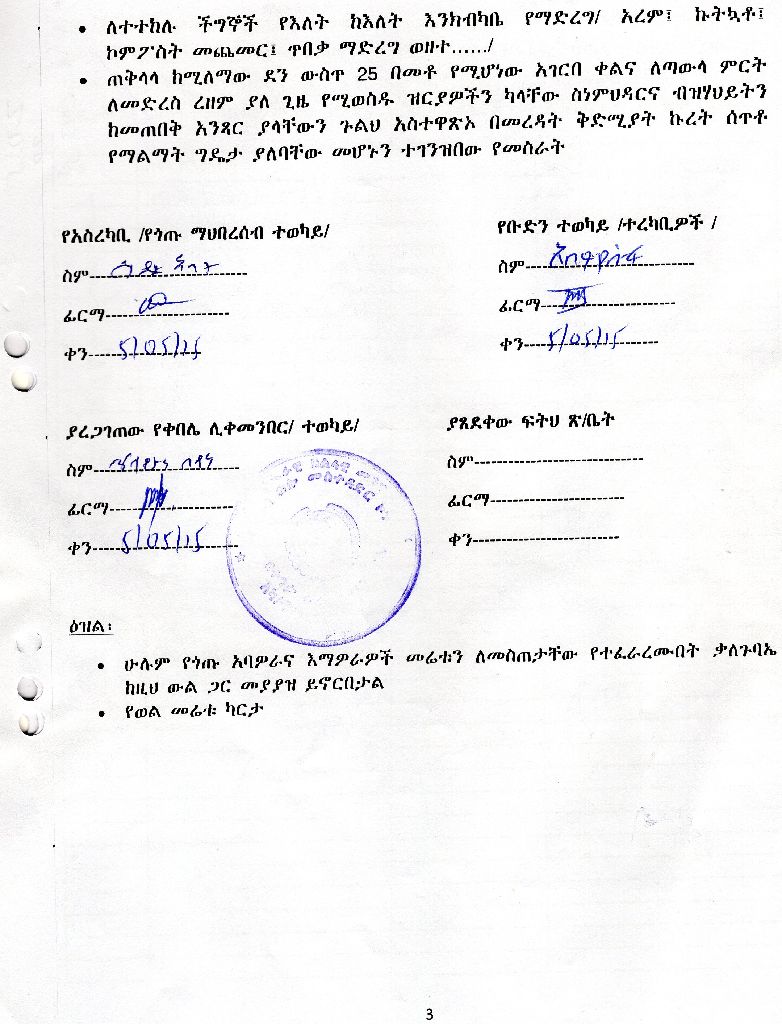 • ለተተከሉ ችግኞች የእለት ከእለት እንክብካቤ የማድረግ/ አረም፤ ኩትኳቶ፤
ኮምፖስት መጨመር፤ ጥበቃ ማድረግ ወዘተ....../
• ጠቅላላ ከሚለማው ደን ውስጥ 25 በመቶ የሚሆነው አገርበ ቀልና ለጣውላ ምርት
ለመድረስ ረዘም ያለ ጊዜ የሚወስዱ ዝርያዎችን ካላቸው ስነምህዳርና ብዝሃህይትን
ከመጠበቅ አንጻር ያላቸውን ጉልህ አስተዋጽኦ በመረዳት ቅድሚያት ኩረት ሰጥቶ
የማልማት ግዴታ ያለባቸው መሆኑን ተገንዝበው የመስራት
የአስረካቢ /የጎጡ ማህበረሰብ ተወካይ/
ስም
ፊርማ
ቀን 5/05/15
የቡድን ተወካይ /ተረካቢዎች /
ስም
ፊርማ
ቀን 5/05/15
ያረጋገጠው የቀበሌ ሊቀመንበር/ ተወካይ/
ስም
ፊርማ
ቀን 5/05/15
ያጸደቀው ፍትህ ጽ/ቤት
ስም
ፊርማ
ቀን
ዕዝል፡
• ሁሉም የጎጡ አባዎራና እማዎራዎች መሬቱን ለመስጠታቸው የተፈራረሙበት ቃለጉባኤ
ከዚህ ውል ጋር መያያዝ ይኖርበታል
• የወል መሬቱ ካርታ
3